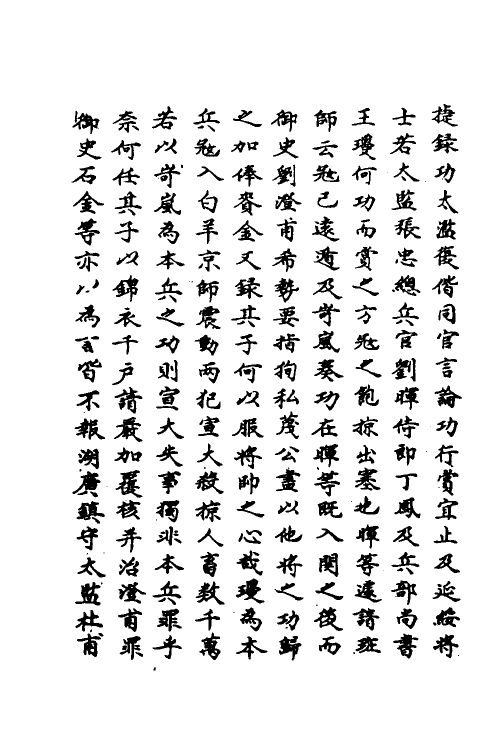 捷録功太濫復偕同官言論功行賞宜止及延綏將
士若太監張忠總兵官劉暉侍郎丁鳳及兵部尚書
王瓊何功而賞之方𡨥之飽掠出塞也暉等遽請班
師云𡨥已遠遁及岢嵐奏功在暉等既入関之後而
御史劉澄甫希勢要指狥私蔑公盡以他將之功歸
之加俸賚金又録其子何以服將帥之心哉瓊為本
兵𡨥入白羊京師震動兩犯宣大殺掠人畜数千萬
若以岢嵐為本兵之功則宣大失事獨非本兵罪乎
奈何任其子以錦衣千戸請嚴加覆核并治澄甫罪
御史石金等亦以為言皆不報湖廣鎮守太監杜甫